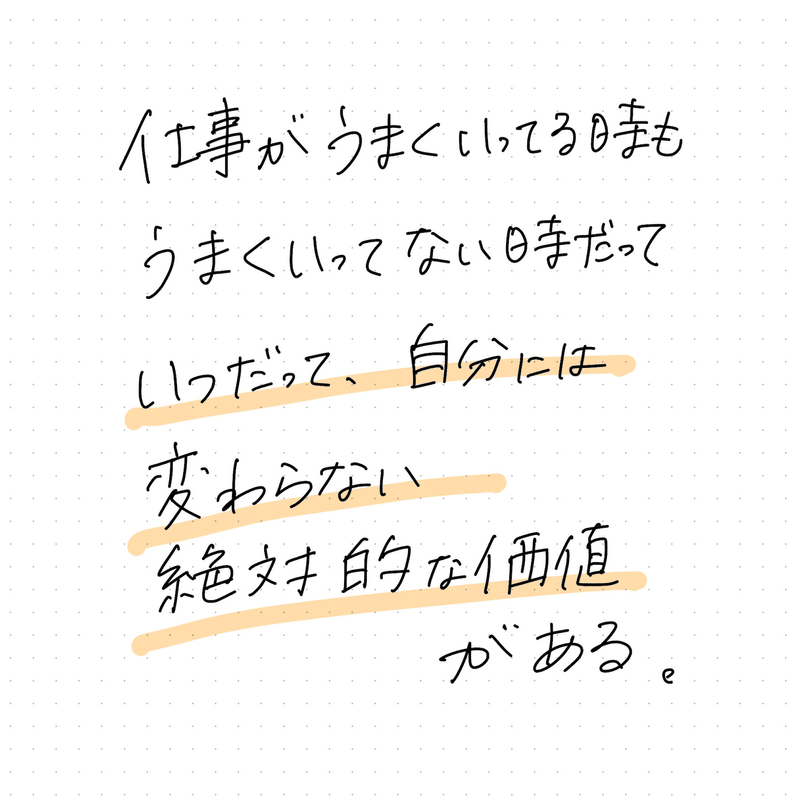 仕事がうまくいってる時も
うまくいってない時だって
いつだって、自分には
変わらない
絶対的な価値
がある。